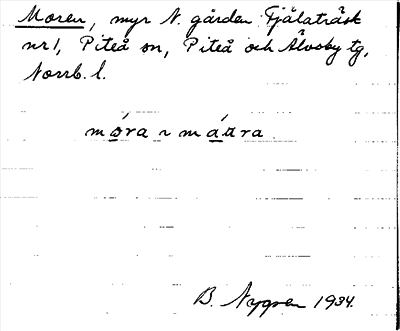 Moren, myr N. gården Fjälaträsk
nr 1, Piteå sn, Piteå och Älvsby tg,
Norrb. l.
B. Nygren 1934.